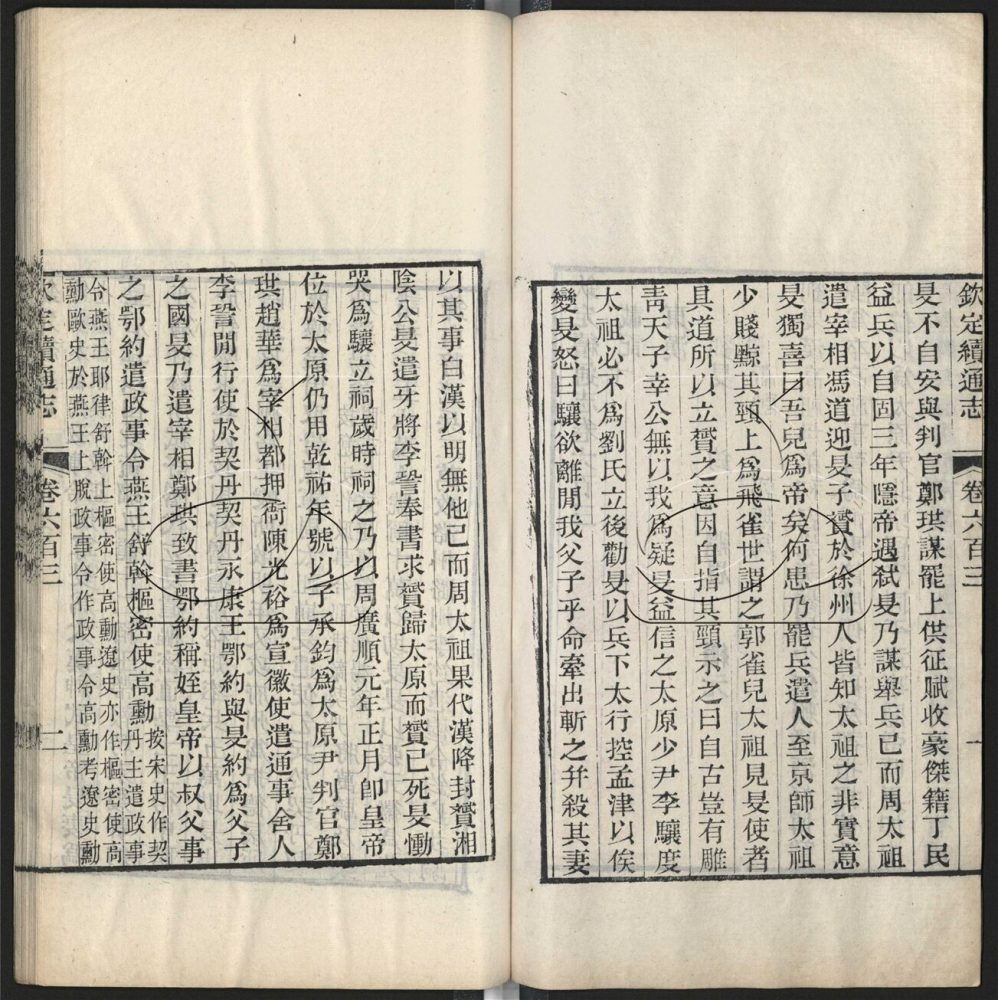 欽定續通志 卷六百三 一
旻不自安與判官鄭珙謀罷上供征賦收豪傑籍丁民
益兵以自固三年隱帝遇弒旻乃謀舉兵已而周太祖
遣宰相馮道迎旻子贇於徐州人皆知太祖之非實意
旻獨喜曰吾兒爲帝矣何患乃罷兵遣人至京師太祖
少賤黥其頸上爲飛雀世謂之郭雀兒太祖見旻使者
具道所以立贇之意因自指其頸示之曰自古豈有雕
靑天子幸公無以我爲疑旻益信之太原少尹李驤度
太祖必不爲劉氏立後勸旻以兵下太行控孟津以俟
變旻怒曰驤欲離閒我父子乎命牽出斬之幷殺其妻
以其事白漢以明無他已而周太祖果代漢降封贇湘
陰公旻遣牙將李㫬奉書求贇歸太原而贇已死旻慟
哭爲驤立祠歲時祠之乃以周廣順元年正月卽皇帝
位於太原仍用乾祐年號以子承鈞爲太原尹判官鄭
珙趙華爲宰相都押衙陳光裕爲宣徽使遣通事舍人
李㫬閒行使於契丹契丹永康王鄂約與旻約爲父子
之國旻乃遣宰相鄭珙致書鄂約稱姪皇帝以叔父事
之鄂約遣政事令燕王舒斡樞密使高勳
按宋史作契
丹主遣政事
令燕王耶律舒斡上樞密使高勳遼史亦作樞密使高
勳歐史於燕王上脫政事令作政事令高勳考遼史勳
欽定續通志 卷六百三 二